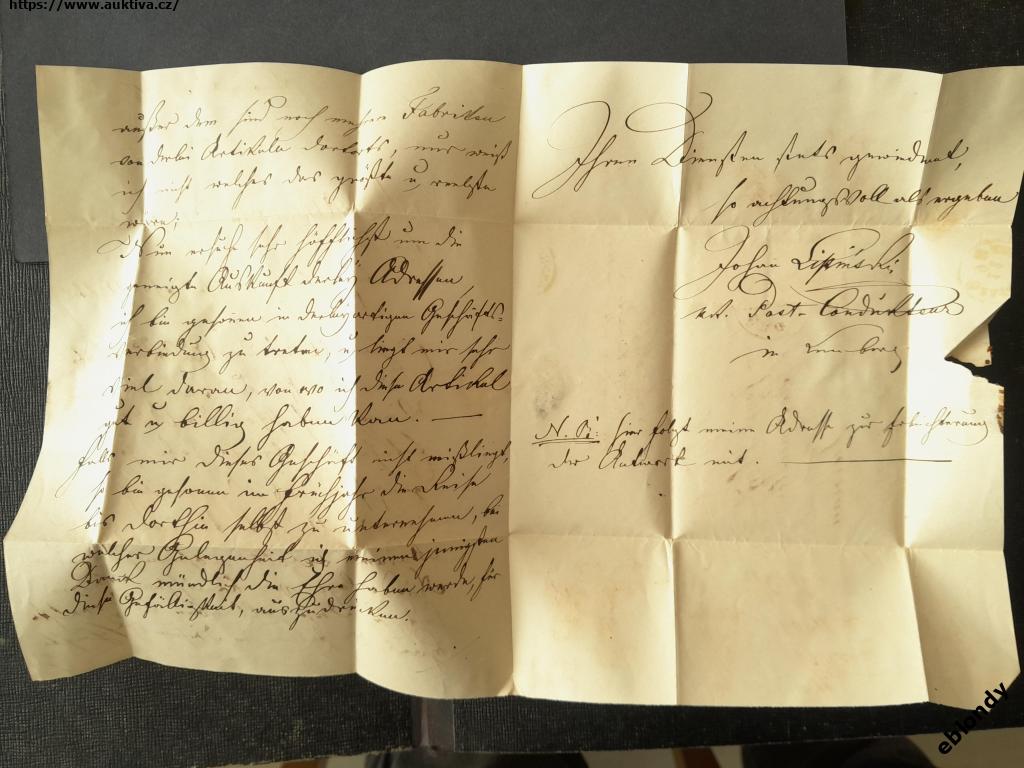 https://www.auktiva.cz/
außer dem sind noch mehre Fabriken
von derlei Artikeln dortorts, nur weiß
ich nicht welches das größte u reelste
wäre;
Ich ersuche sehr höfflichst um die
geneigte Auskunft derley Adressen,
ich bin gesonen in derley artigen Geschäfts-
verbindung zu treten, u liegt mir sehr
viel daran, von wo ich diese Artikel
gut u billig haben kan. —
Falls mir dieses Geschäft nicht mißlingt,
so bin gesonnen im Frühjahr die Reise
bis dorthin selbst zu unternehmen, bei
welcher Gelegenheit ich meinen innigsten
Dank mündlich die Ehre haben werde, für
diese Gefälligkeit, auszudrücken.
Ihren Diensten stets gewiedmet,
so achtungsvoll als ergeben
Johan Lipinski
Post-Condukteur
in Lemberg
N. B: hier folgt meine Adresse zur Erleichterung
der Antwort mit.
ebiondy